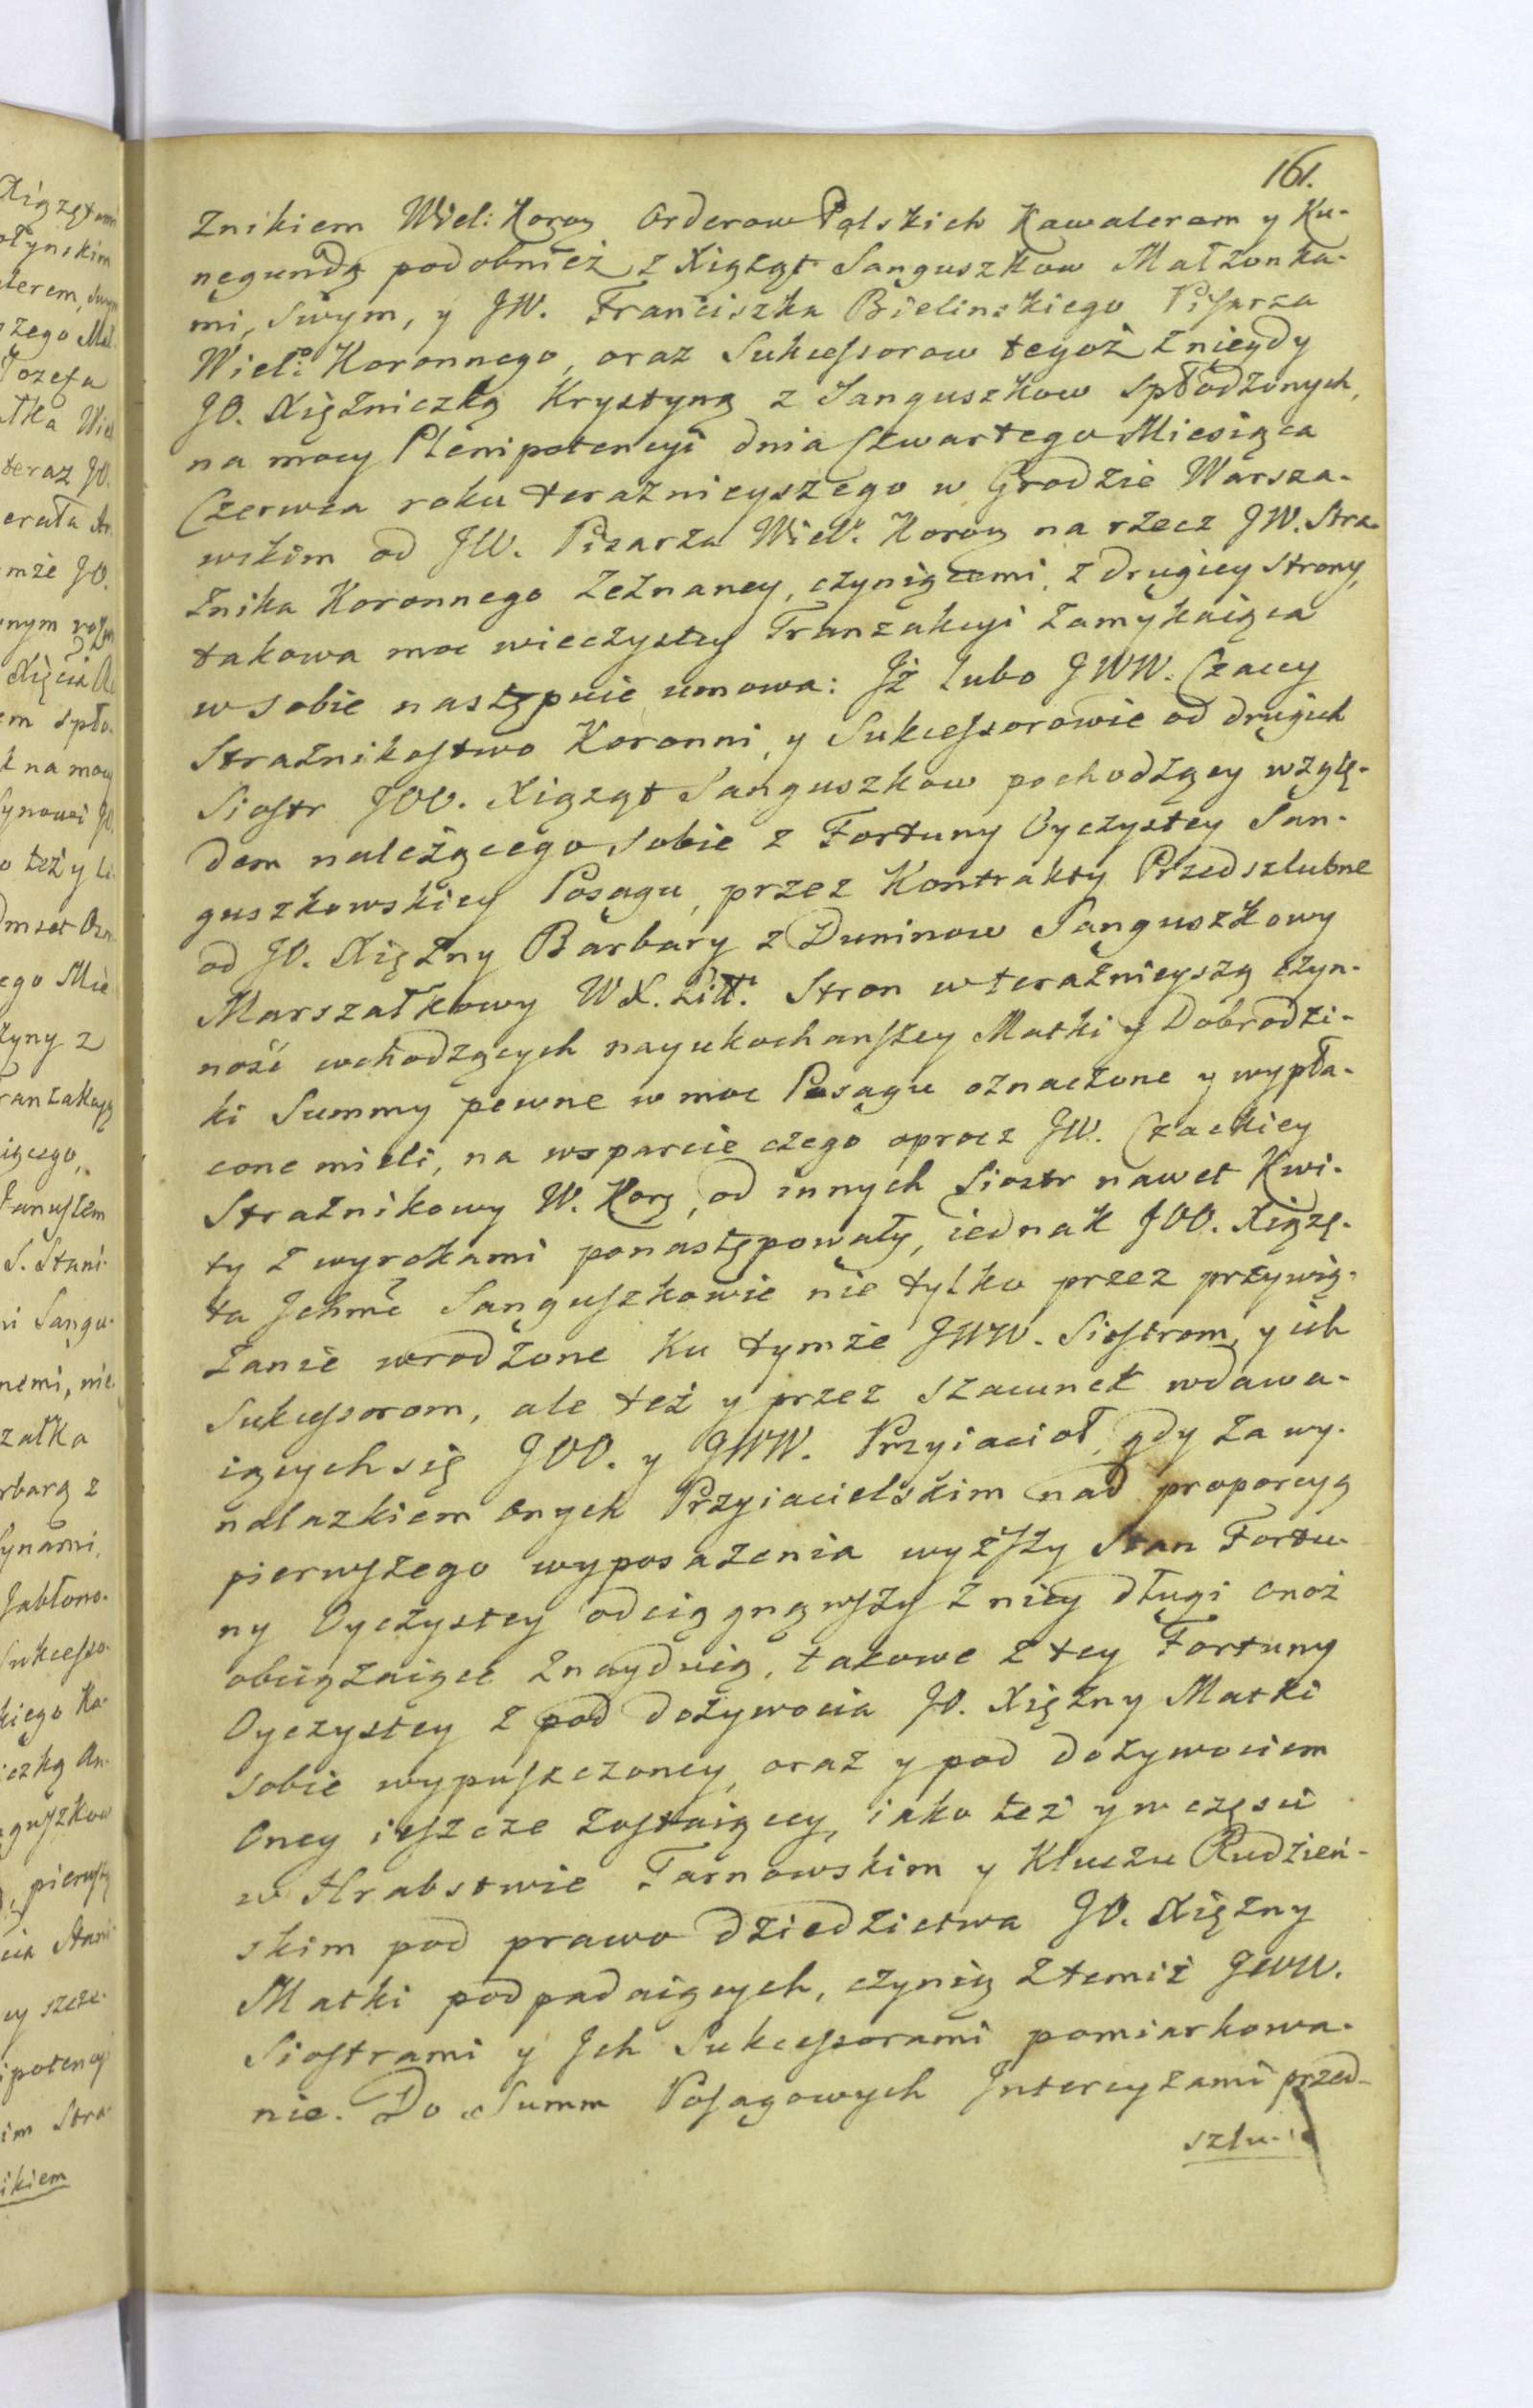 161.
żnikiem Wiel: Korog Orderow Polskich Kawalerem y Ku-
negundą podobnież z Xiążąt Sanguszkow Małżonka-
mi, Swym, y JW. Franciszka Bielinskiego Pisarza
Wiel: Koronnego, oraz Sukcessorow tegoż z niegdy
JO. Xiężniczką Krystyną z Sanguszkow spłodzonych,
na mocy Plenipotencyi dnia Czwartego Miesiąca
Czerwca roku teraznieyszego w Grodzie Warsza-
wskim od JW. Pisarza Wiel: Korog na rzecz JW. Stra-
żnika Koronnego zeznaney, czyniącemi, z drugiey strony,
takowa moc wieczystey Tranzakcyi zamykaiąca
w sobie następuie umowa: Jż lubo JWW. Czaccy
Strażnikostwo Koronni, y Sukcessorowie od drugich
Siostr JOO. Xiążąt Sanguszkow pochodzący wzglę-
dem należącego sobie z Fortuny Oyczystey San-
guszkowskiey Posagu, przez Kontrakty Przedszlubne
od JO. Xiężny Barbary z Duninow Sanguszkowy
Marszałkowy W.X. Litt: Stron w teraznieyszą czyn-
ność wchodzących nayukochanszey Matki y Dobrodzi-
ki Summy pewne w moc Posagu oznaczone y wypła-
cone mieli, na wsparcie czego oprocz JW. Czackiey
Strażnikowy W. Korg, od innych Siostr nawet Kwi-
ty z wyrokami ponastępowały, iednak JOO. Xiążę-
ta Jchmć Sanguszkowie nie tylko przez przywią-
zanie wrodzone Ku tymże JWW. Siostrom, y ich
Sukcessorom, ale też y przez szacunek wdawa-
iących się JOO. y JWW. Przyiacioł, gdy za wy-
nalazkiem onych Przyiacielskim nad proporcyą
pierwszego wyposazenia wyższy Stan Fortu-
ny Oyczystey odciągnąwszy z niey długi onoż
obciążaiące znayduią, takowe z tey Fortuny
Oyczystey z pod dożywocia JO. Xiężny Matki
sobie wypuszczoney, oraz y pod dożywociem
Oney ieszcze zostaiącey, iako też y w częsci
w Hrabstwie Tarnowskim y Kluczu Rudzień-
skim pod prawo dziedzictwa JO. Xiężny
Matki podpadaiących, czynią z temiż JWW.
Siostrami y Jch Sukcessorami pomiarkowa-
nie. Do Summ Posagowych Jntercyzami przed-
szlu-